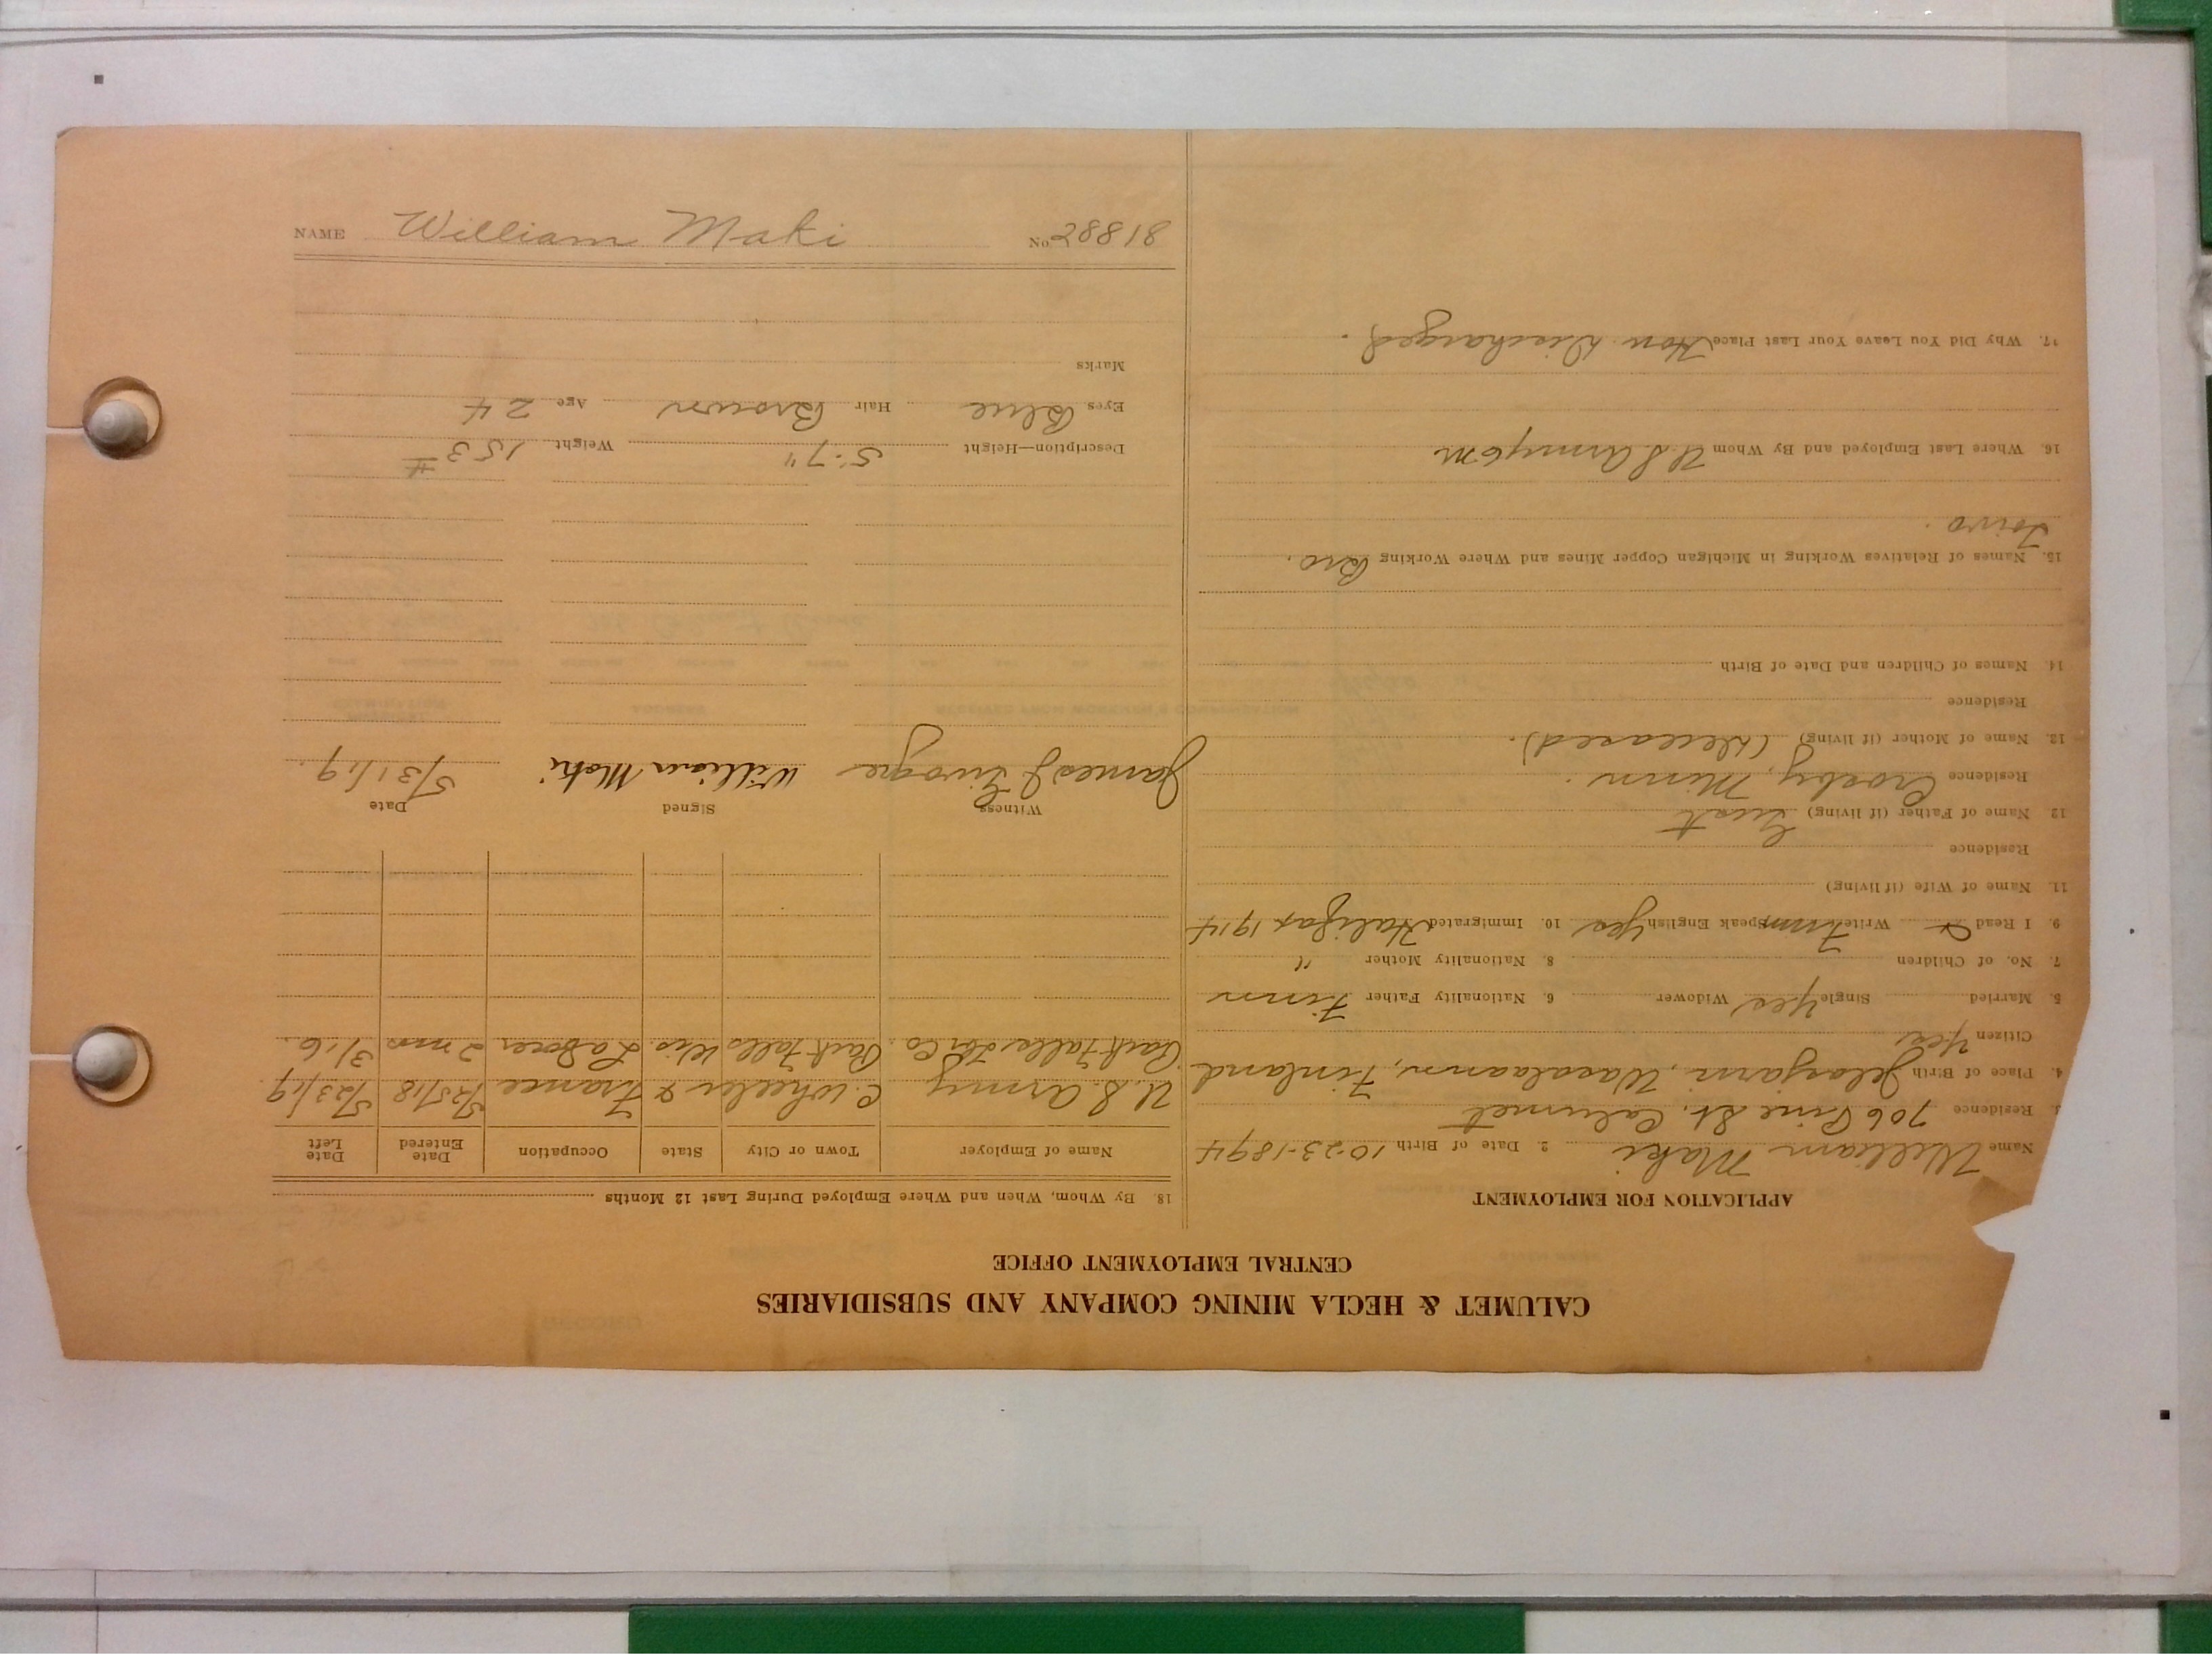 CALUMET & HECLA MINING COMPANY AND SUBSIDIARIES
CENTRAL EMPLOYMENT OFFICE
APPLICATION FOR EMPLOYMENT
Name William Maki 2. Date of Birth 10-23-1894
3. Residence 706 Pine St. Calumet
4. Place of Birth Jelasjarvi, Wasalaann, Finland
Citizen Yes
5. Married Single Yes Widower 6. Nationality Father Finn
7. No. of Children 8. Nationality Mother "
9. I Read & Write Finn Speak English Yes 10. Immigrated Halifax 1914
11. Name of Wife (if living)
Residence
12 Name of Father (if living) Gust
Residence Crosby, Minn.
13. Name of Mother (if living) (Deceased).
Residence
14. Names of Children and Date of Birth
15. Names of Relatives Working in Michigan Copper Mines and Where Working Bro.
Toivo.
16. Where Last Employed and By Whom U.S. Army 6 m
17. Why Did You Leave Your Last Place Hon. Discharged.
18. By Whom, When and Where Employed During Last 12 Months
Name of Employer Town or City State Occupation Date Entered Date Left
U.S. Army C. Wheeler & France 5/25/18 5/23/19
Park Falls Lbr Co. Park Falls Wis. Laborer 2 mos 3/16.
Witness Signed Date
James J William Maki 5/31/19.
Description—Height 5'-7" Weight 153#
Eyes Blue Hair Brown Age 24
Marks
NAME William Maki No. 28818